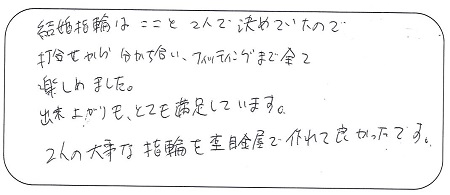 結婚指輪は ここと 2人で決めていたので
打合せから 分かち合い、フィッティングまで全て
楽しめました。
出来上がりも、とても満足しています。
2人の大事な指輪を杢目金屋で作れて良かったです。